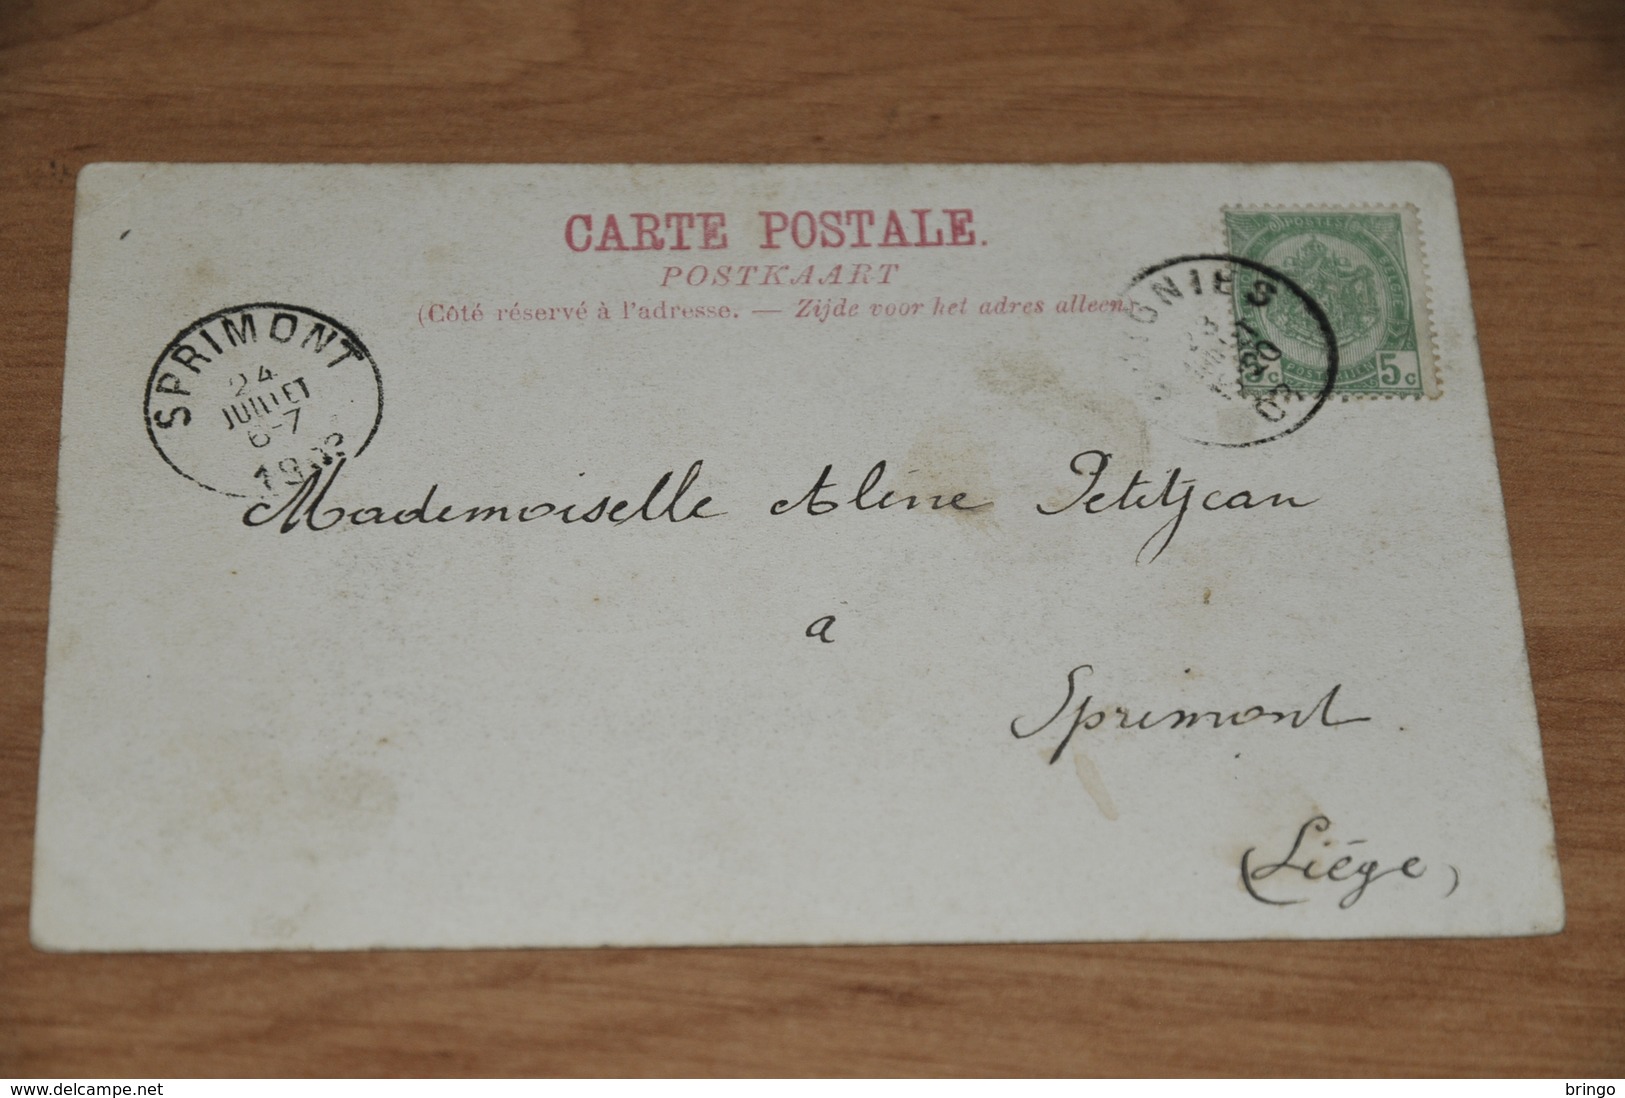 CARTE POSTALE.
POSTKAART
(Côté réservé à l'adresse. — Zijde voor het adres alleen
POSTES BELGIE
5c 5c
SPRIMONT
24
JUILLET
6-7
Mademoiselle Aline Petitjean
a
Sprimont.
(Liége)
www.delcampe.net
bringo